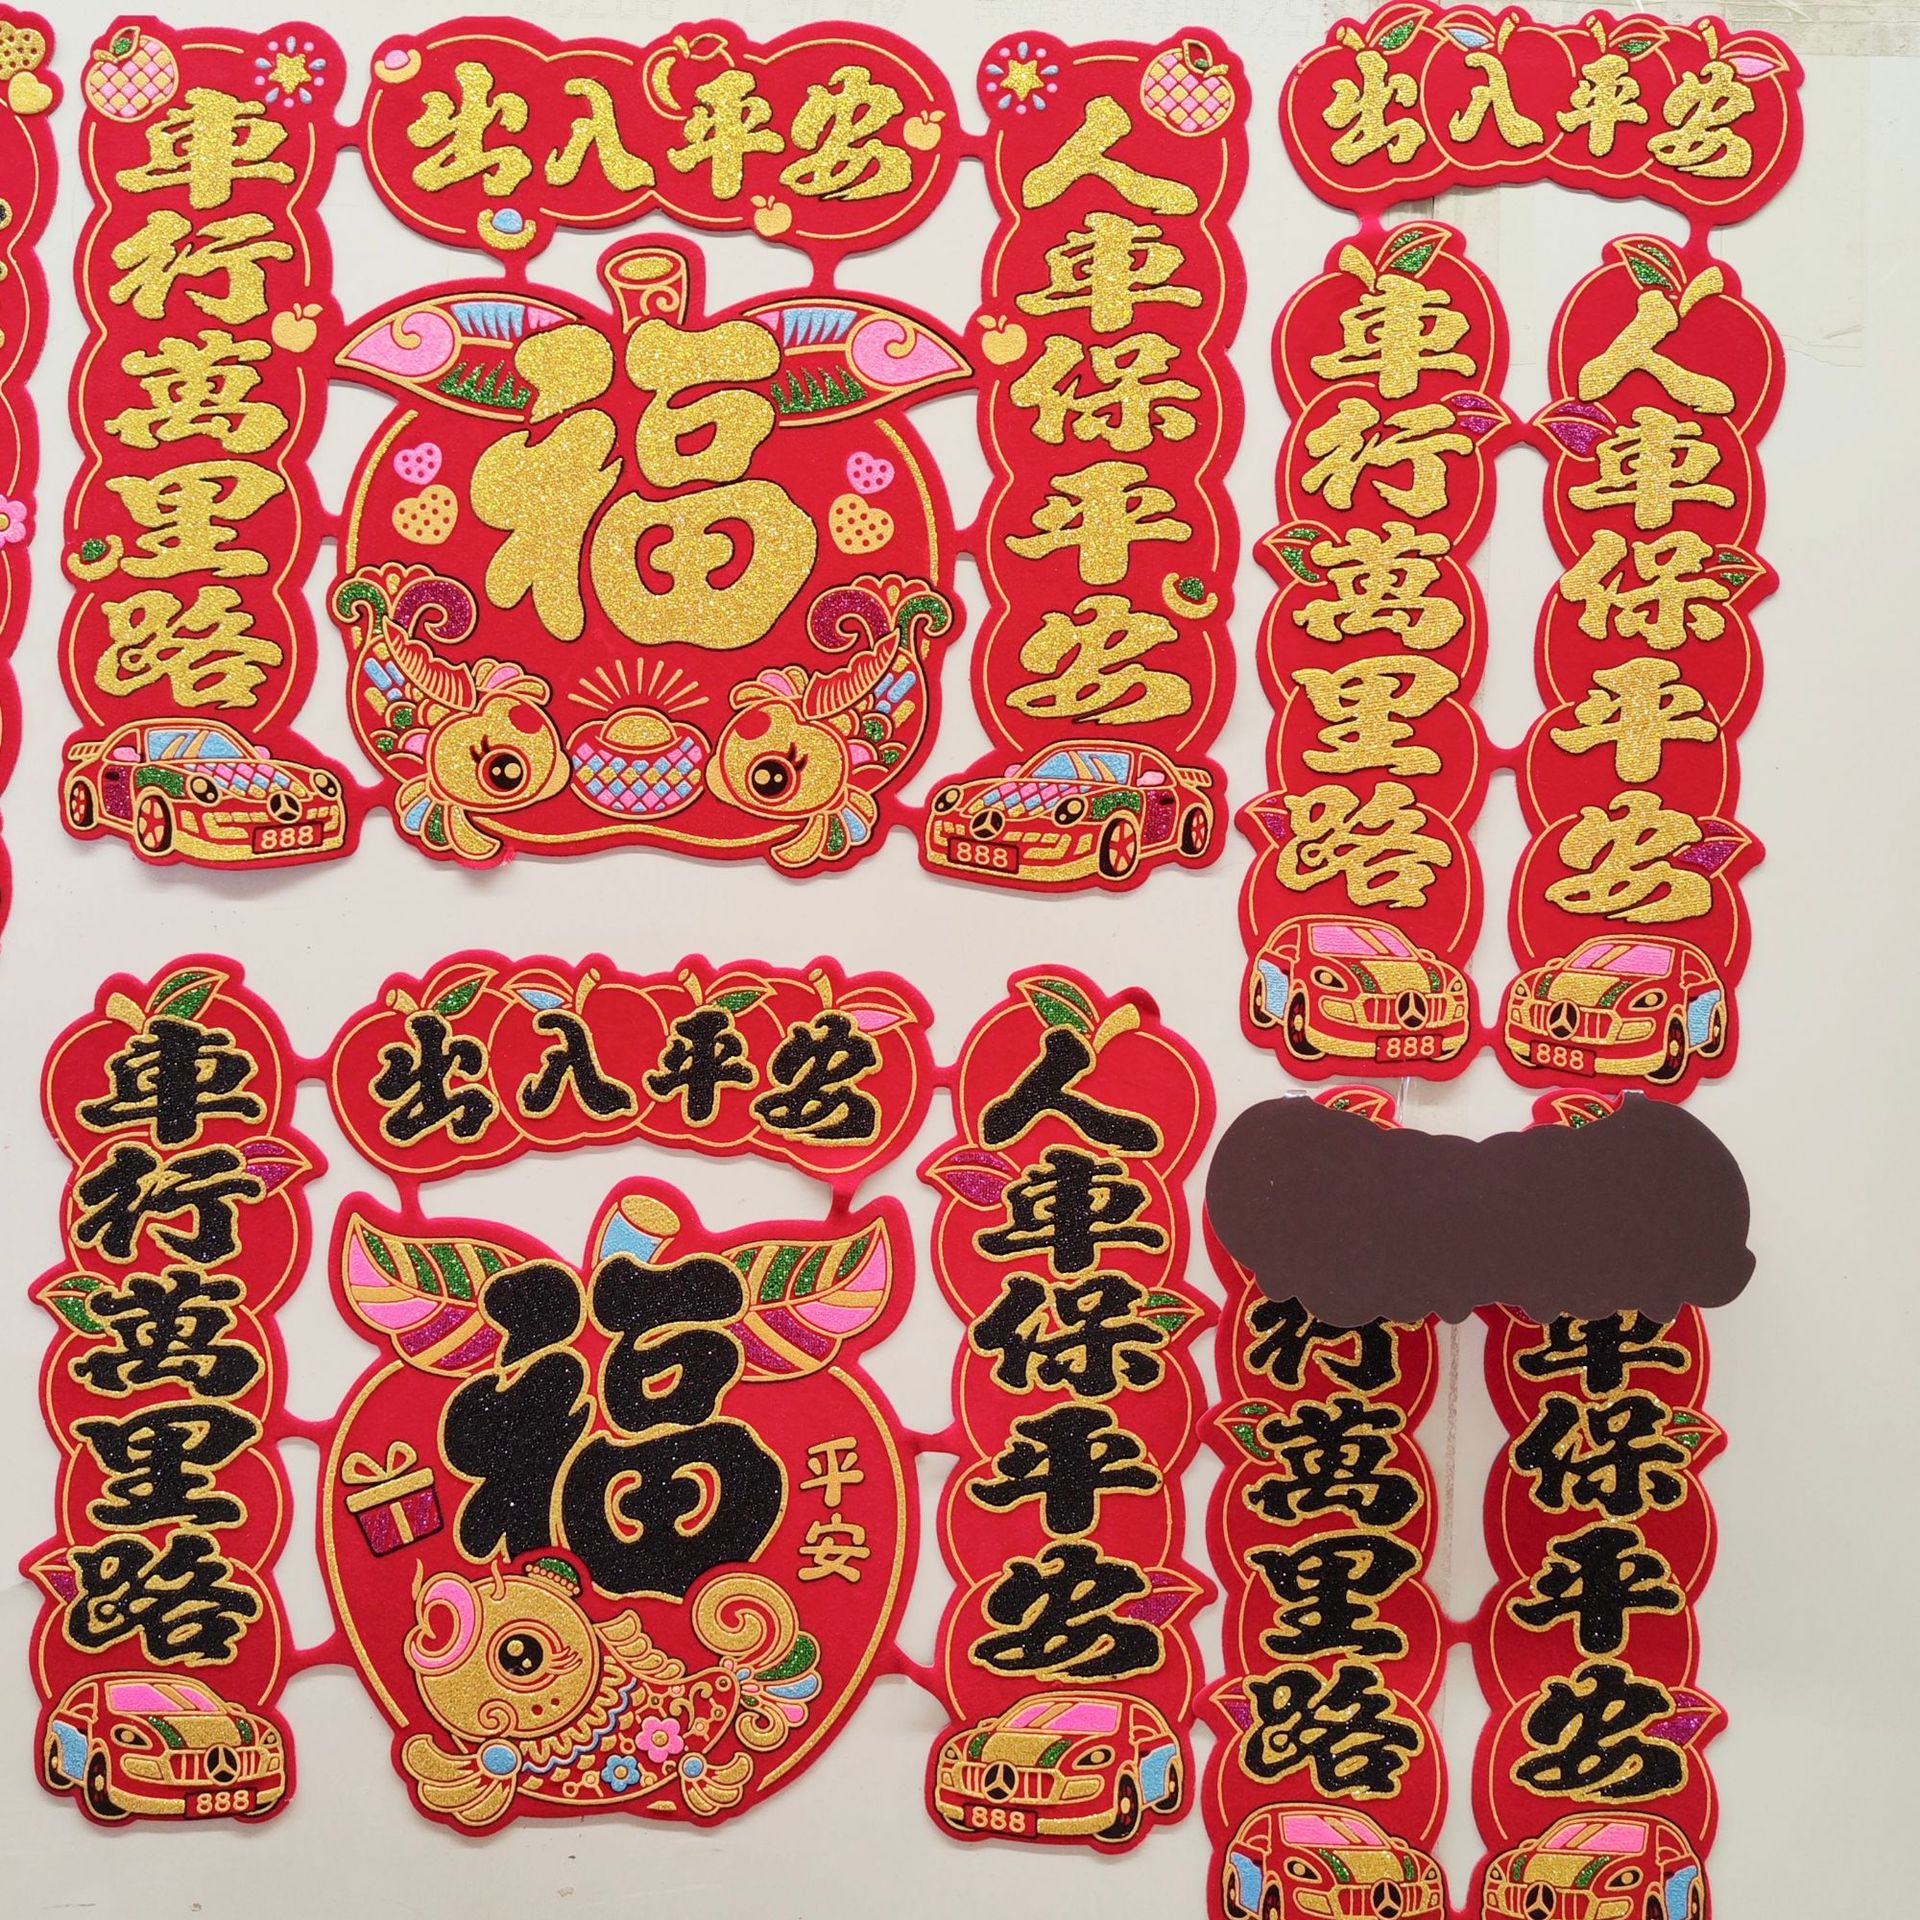 車行萬里路
出入平安
人車保平安
福
888
888
出入平安
車行萬里路
人車保平安
888
888
車行萬里路
出入平安
人車保平安
福
平安
888
888
行萬里路
車保平安